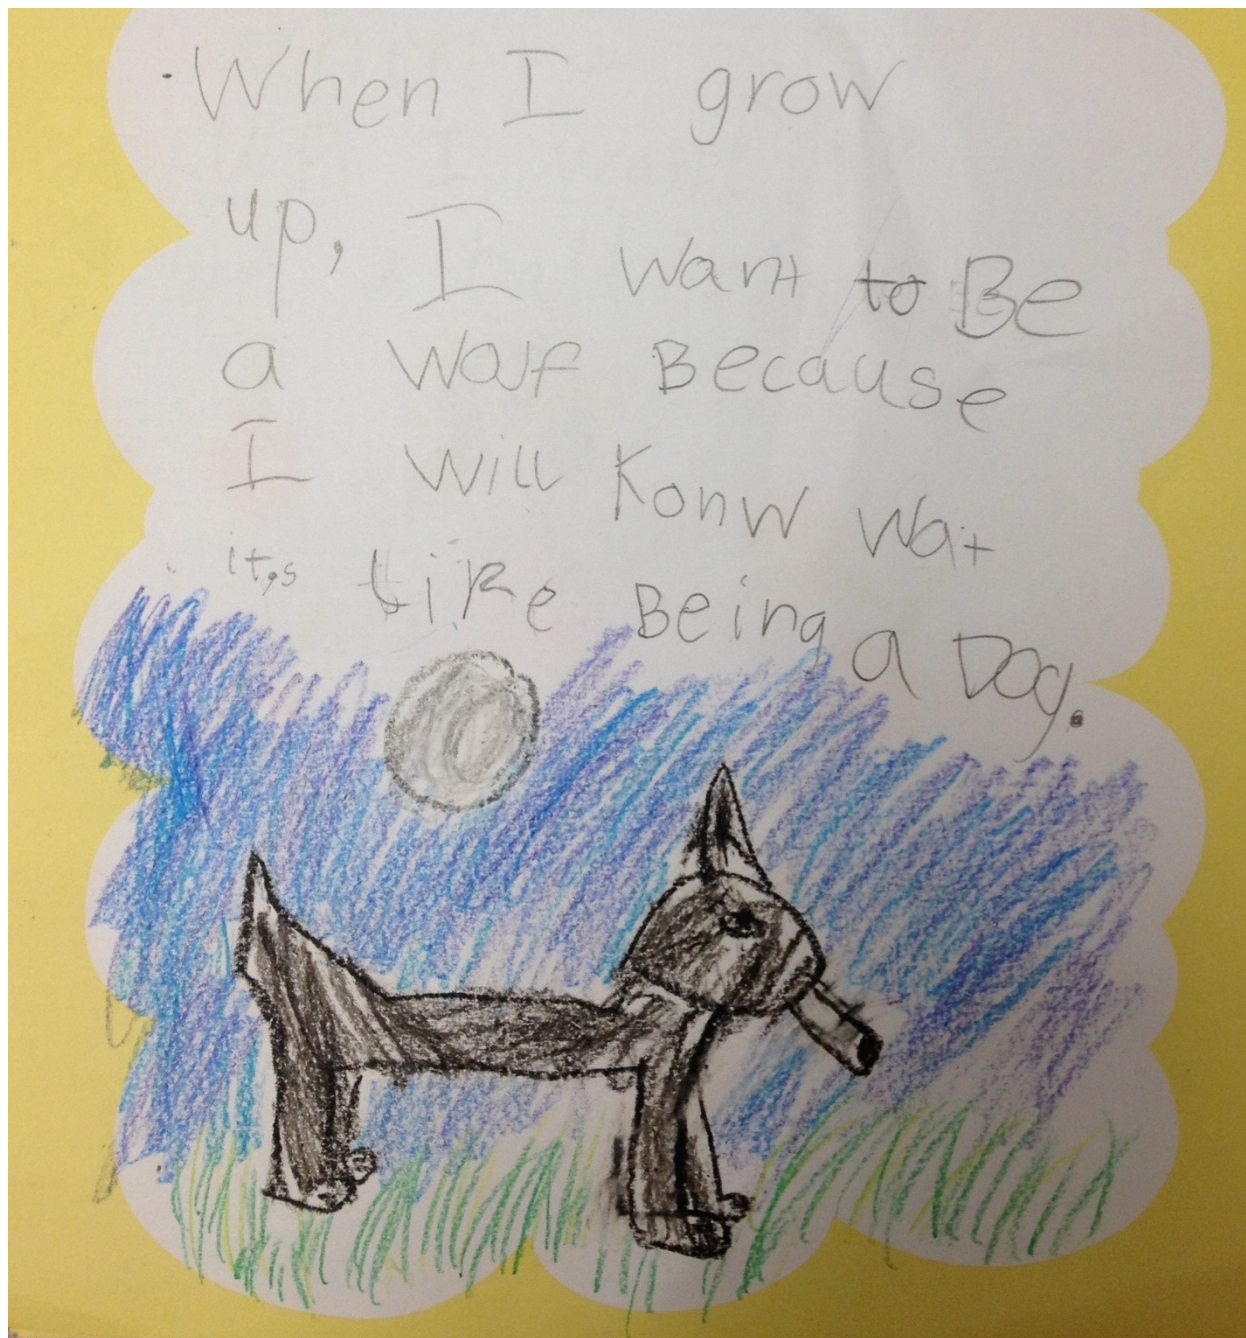 When I grow
up, I want to Be
a Wolf Because
I will Konw Wat
it,s like Being a Dog.